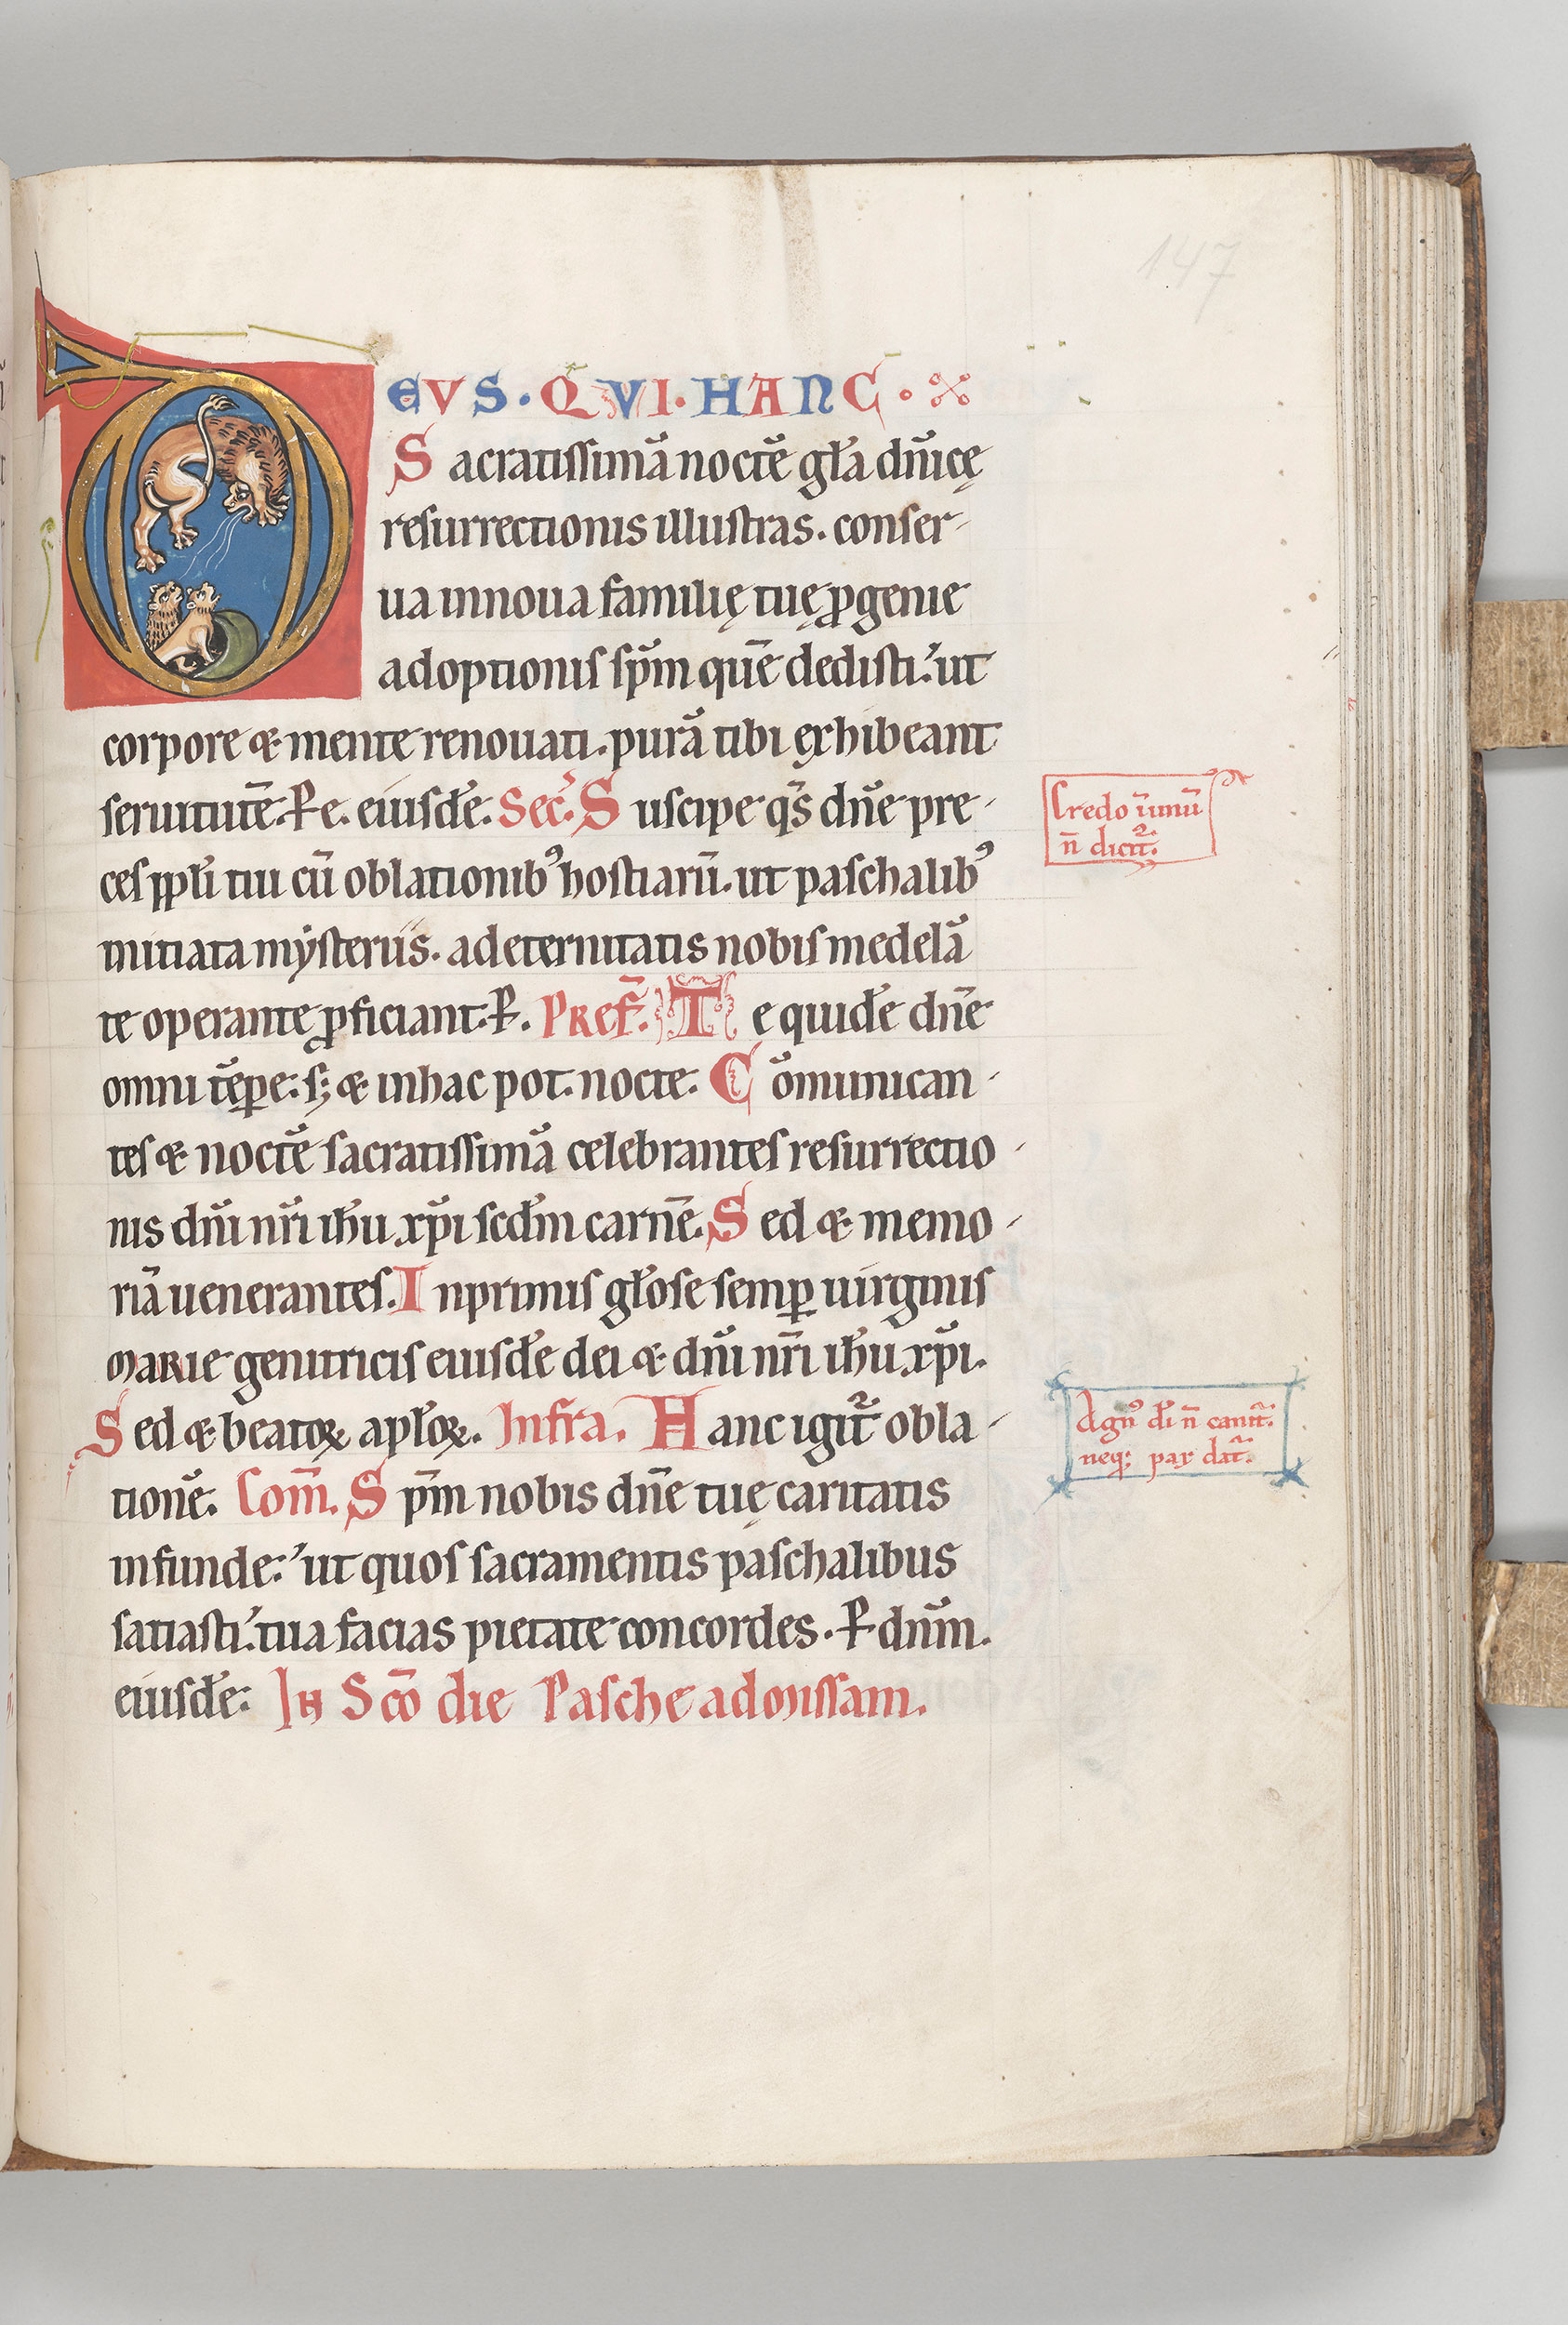 147
DEVS · QVI · HANC ·
Sacratissimā noctē gła dn̄icę
resurrectionis illustras. conser-
ua innoua familię tuę ꝓgenie
adoptionis sp̄m quē dedisti. ut
corpore & mente renouati. purā tibi exhibeant
seruitutē. P e. eiusdē. Sec̄. Suscipe qs̄ dn̄e pre-
ces ppłi tui cū oblationibꝰ hostiarū. ut paschalibꝰ
initiata mẏsteriis. ad eternitatis nobis medelā
te operante ꝓficiant. P. Pref̄. Te quidē dn̄e
omni tēꝑe: s; & in hac pot. nocte: Cōmunican-
tes & noctē sacratissimā celebrantes resurrectio-
nis dn̄i nr̄i ihu xp̄i scdm carnē. Sed & memo-
riā uenerantes. Inprimis głose semꝑ uirginis
Marie genitricis eiusdē dei & dn̄i nr̄i ihu xp̄i.
Sed & beatoꝝ apłoꝝ. Infra. Hanc igit̄ obla-
tionē. Com̄. Sp̄m nobis dn̄e tuę caritatis
infunde: ut quos sacramentis paschalibus
satiasti. tua facias pietate concordes. P dn̄m.
eiusdē: IN Sc̄o die Pasche ad Missam.
Credo ī unū
n̄ dicit̄.
Agnꝰ di n̄ canit̄.
neqꝫ pax dat̄.